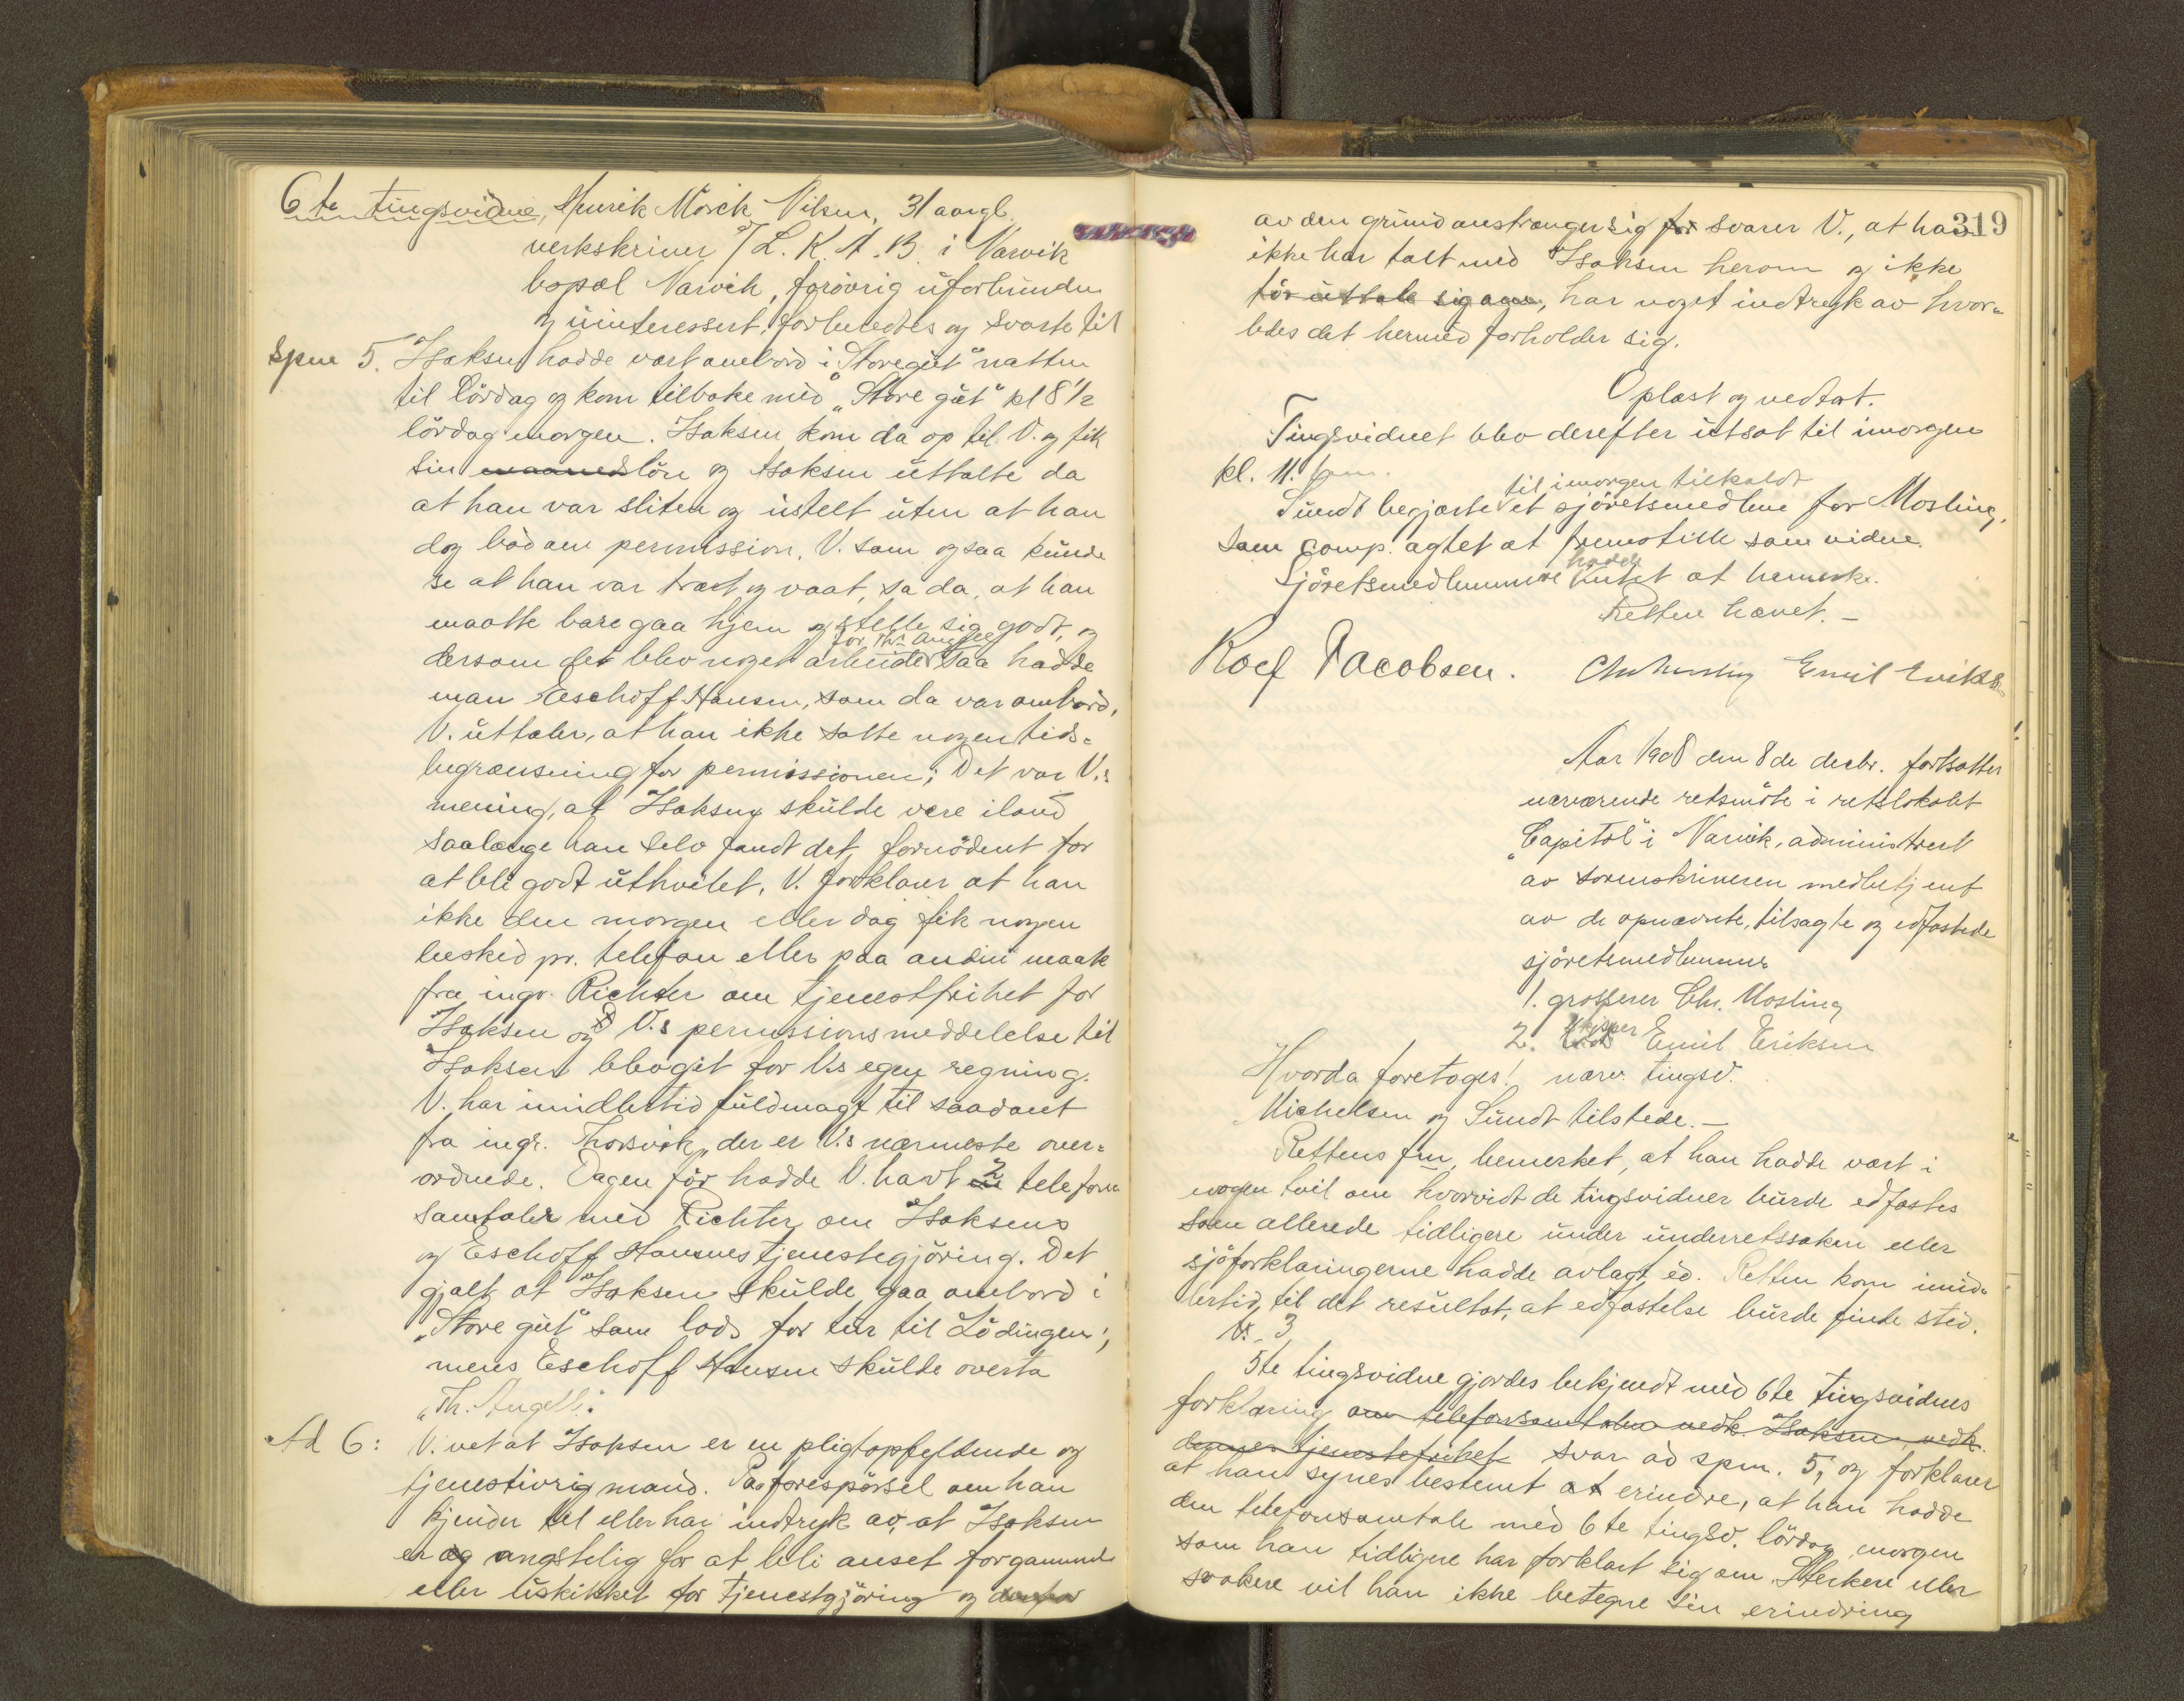 6te tingsvidne, Henrik Mørck Nilsen, 31 aargl.
verkskriver v/ L. K. A. B. i Narvik
bopæl Narvik, forøvrig uforbunden
og uinteressert, forberedtes og svarte til
Spm 5. Isaksen hadde vært ombord i "Storegut" natten
til lördag og kom tilbake med "Store gut" kl 8 1/2
lördag morgen. Isaksen kom da op til V. og fik
sin maaneds lön og Isaksen uttalte da
at han var sliten og ustelt uten at han
dog bad om permission. V. som ogsaa kunde
se at han var træt og vaat, sa da, at han
maatte bare gaa hjem og stelle sig godt, og
for Th. Angell
dersom det blev noget arbeide saa hadde
man Eschoff Hansen, som da var ombord.
V. uttaler, at han ikke satte nogen tids-
begrænsning for permissionen; Det var V.s
mening, at Isaksen skulde være iland
saalænge han selv fandt det fornödent for
at bli godt uthvilet. V. forklarer at han
ikke den morgen eller dag fik nogen
besked pr. telefon eller paa anden maate
fra ingr. Richter om tjenestfrihet for
Isaksen og V.s permissionsmeddelelse til
Isaksen blev git for V.s egen regning.
V. har imidlertid fuldmagt til saadant
fra ingr. Thorsvik, der er V.s nærmeste over-
ordnede. Dagen för hadde V. havt 2 telefon
samtaler med Richter om Isaksens
og Eschoff Hansens tjenestegjöring. Det
gjaldt at Isaksen skulde gaa ombord i
"Store gut" som lods for tur til Lödingen;
mens Eschoff Hansen skulde overta
"Th. Angell".
Ad 6: V. vet at Isaksen er en pligtopfyldende og
tjenestivrig mand. Paa forespörsel om han
kjender til eller har indtryk av, at Isaksen
er ængstelig for at bli anset for gammel
eller uskikket for tjenestgjöring og derfor
319
av den grund anstrænger sig for svarer V., at han
ikke har talt med Isaksen herom og ikke
tör uttale sig om, har noget indtryk av hvor-
ledes det hermed forholder sig.
Oplæst og vedtat.
Tingsvidnet blev derefter utsat til imorgen
kl. 11 fm.
til imorgen tilkaldt
Sundt begjærte et sjöretsmedlem for Mosling,
som comp. agtet at fremstille som vidne.
hadde
Sjöretsmedlemmene intet at bemerke.
Retten hævet. -
Roef Jacobsen. Chr Mosling Emil Eriksen
Aar 1908 den 8de decbr. fortsattes
nærværende retsmöte i retslokalet
"Capitol" i Narvik, administrert
av sorenskriveren medbetjent
av de opnævnte, tilsagte og edfæstede
sjöretsmedlemmer
1. grosserer Chr. Mosling
2. skipper Emil Eriksen
Hvorda foretoges! nærv. tingsv.
Michelsen og Sundt tilstede. -
Rettens fm. bemerket, at han hadde vært i
nogen tvil om hvorvidt de tingsvidner burde edfæstes
som allerede tidligere under underretssaken eller
sjöforklaringerne hadde avlagt ed. Retten kom imid-
lertid til det resultat, at edfæstelse burde finde sted.
V. 3
5te tingsvidne gjordes bekjendt med 6te tingsvidnes
forklaring om telefonsamtalen vedk. Isaksen vedk.
dennes tjenestefrihet svar ad spm. 5, og forklarer
at han synes bestemt at erindre, at han hadde
den telefonsamtale med 6te tingsv. lördag morgen
som han tidligere har forklart sig om. Sterkere eller
svakere vil han ikke betegne sin erindring